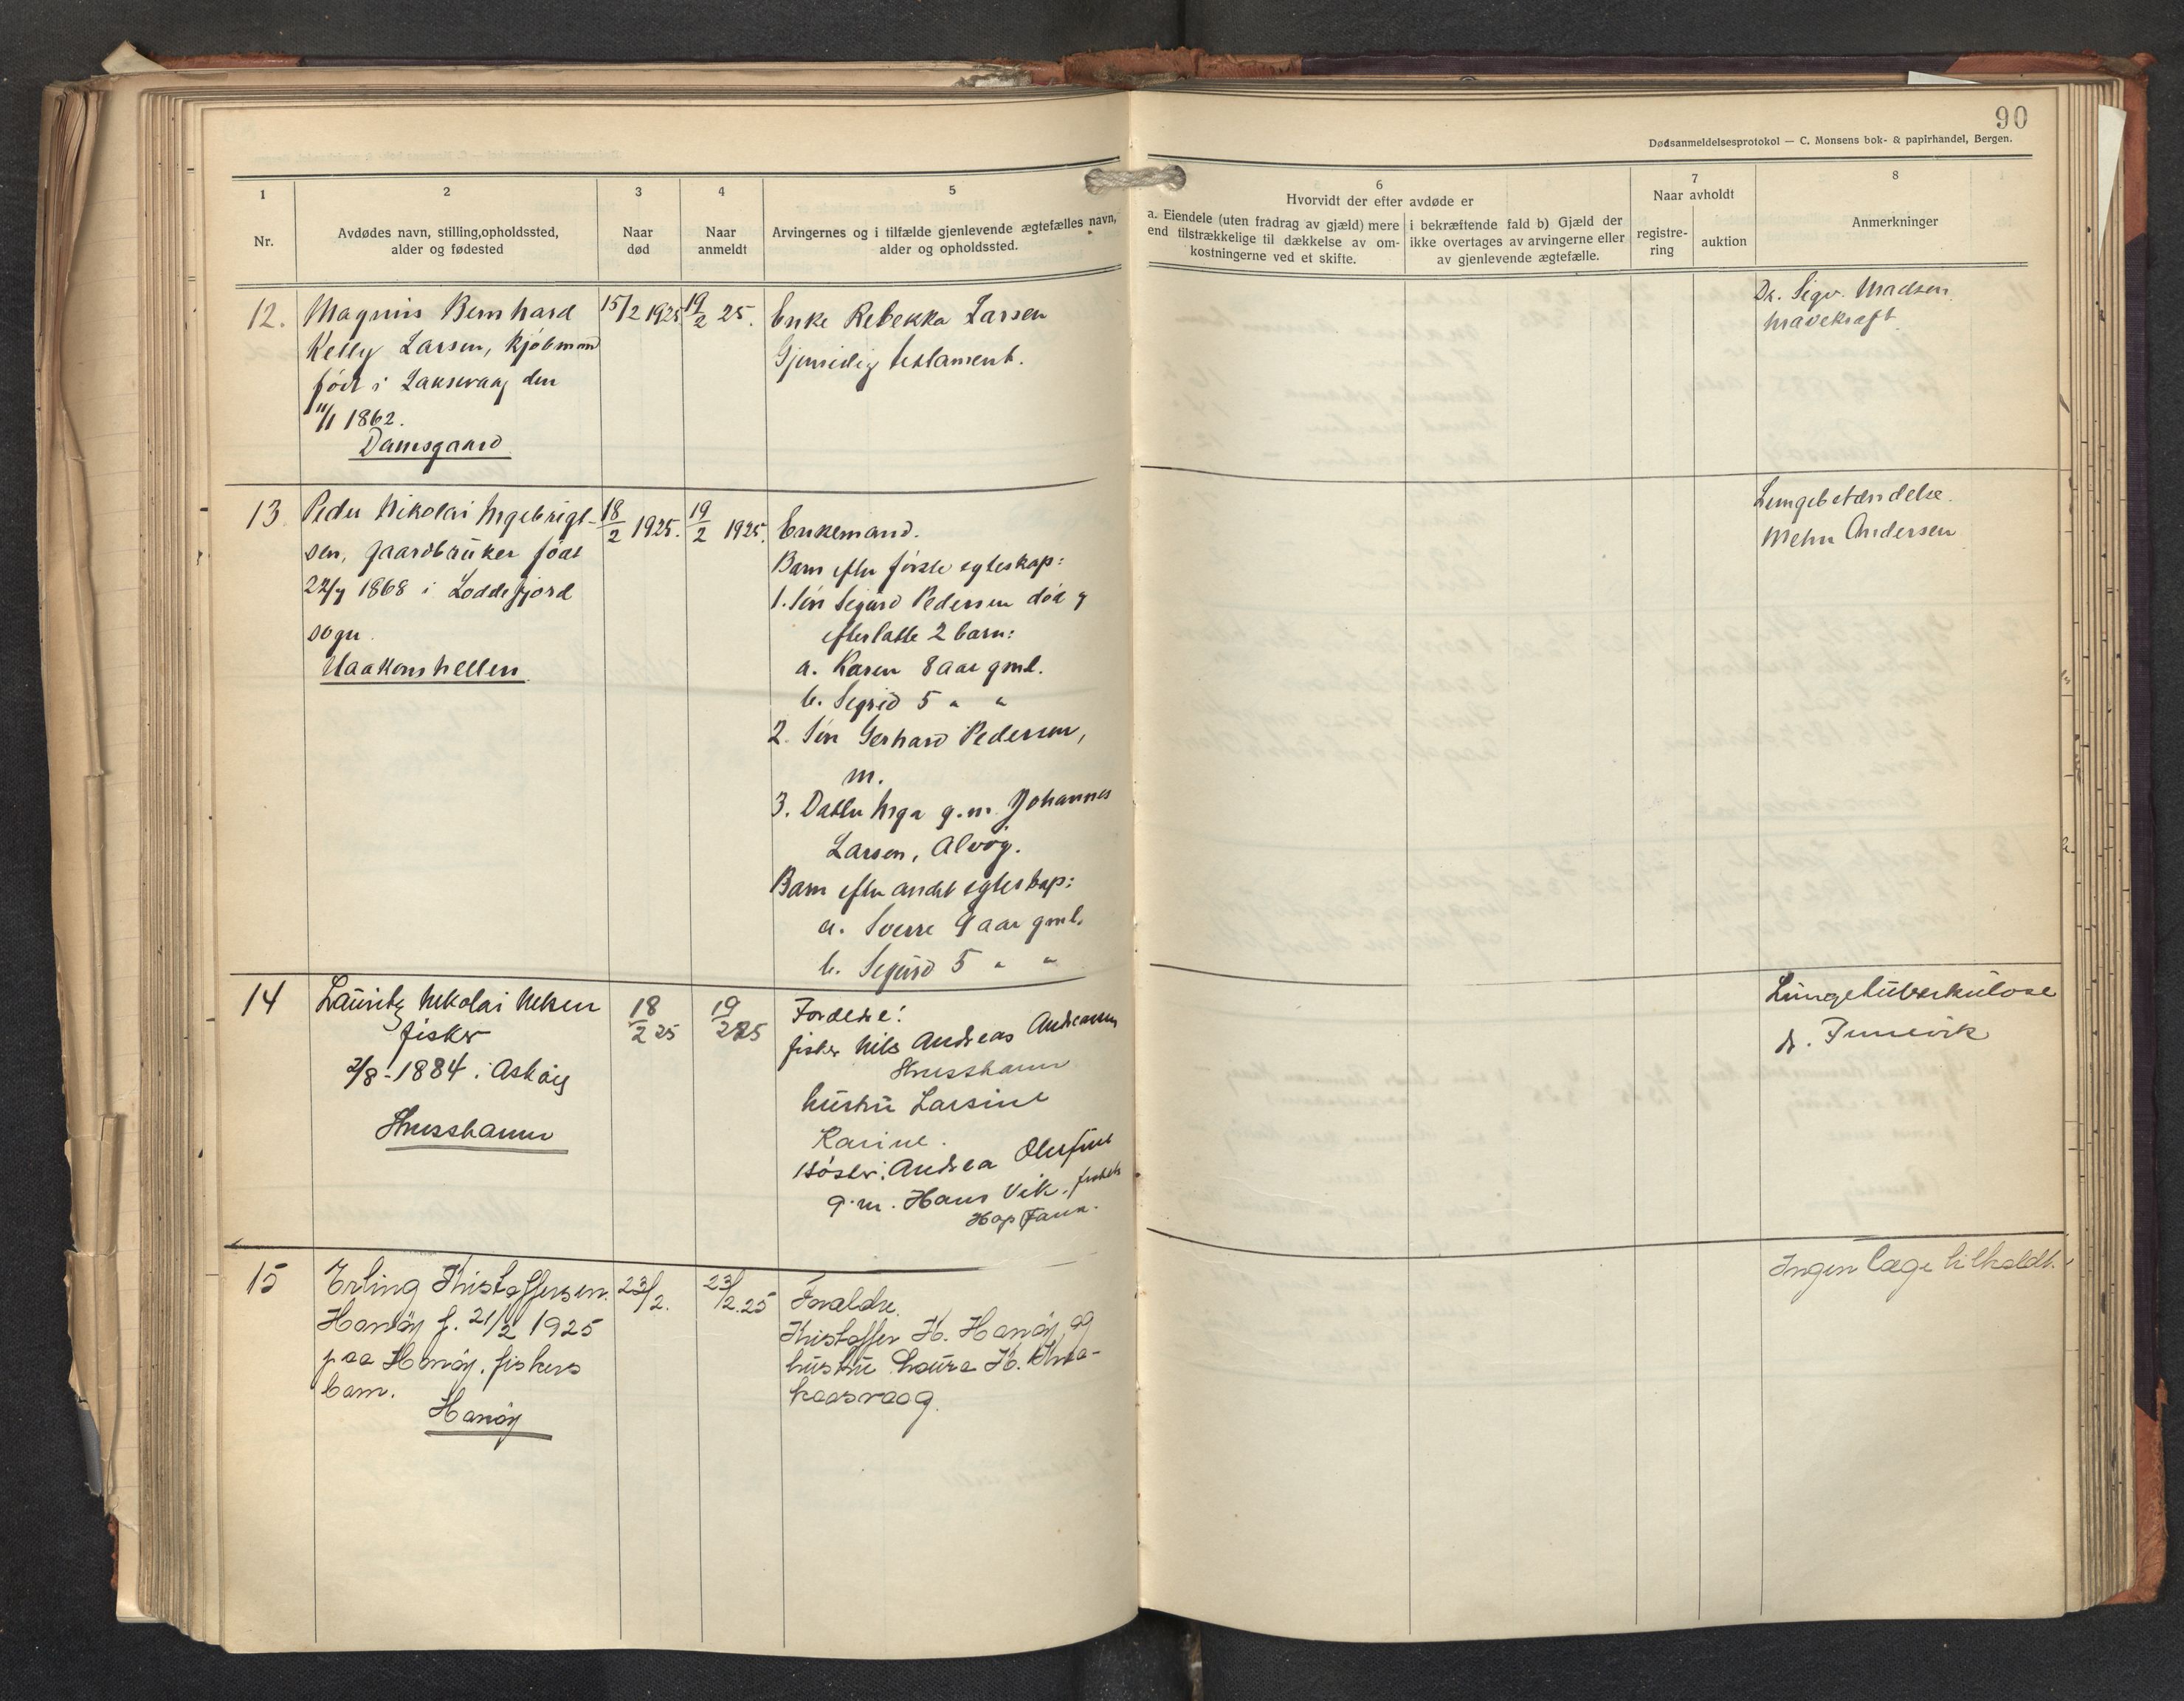 90
Dødsanmeldelsesprotokol — C. Monsens bok- & papirhandel, Bergen.
1
Nr.
2
Avdødes navn, stilling, opholdssted,
alder og fødested
3
Naar
død
4
Naar
anmeldt
5
Arvingernes og i tilfælde gjenlevende ægtefælles navn,
alder og opholdssted.
6
Hvorvidt der efter avdøde er
a. Eiendele (uten fradrag av gjæld) mere
end tilstrækkelige til dækkelse av om-
kostningerne ved et skifte.
i bekræftende fald b) Gjæld der
ikke overtages av arvingerne eller
av gjenlevende ægtefælle.
7
Naar avholdt
registre-
ring
auktion
8
Anmerkninger
12.
Magnus Bernhard
Kelly Larsen, kjøbmann
født i Laksevaag den
11/1 1862.
Damsgaard
15/2 1925
19/2 25.
Enke Rebekka Larsen
Gjensidig testament.
Dr. Sigv. Madsen
Mavekræft
13
Peder Nikolai Ingebrigt-
sen, gaardbruker født
1868 i Loddefjord
sogn.
Haakonshellen
18/2 1925.
19/2 1925.
Enkemand.
Barn efter første egteskap:
1. Søn Sigurd Pedersen død og
efterlatte 2 barn:
a. Karen 8 aar gml.
b. Sigrid 5 " "
2. Søn Gerhard Pedersen,
m.
3. Datter Inga g.m. Johannes
Larsen, Alvøy.
Barn efter andet egteskap:
a. Sverre 9 aar gml.
b. Sigurd 5 " "
Lungebetændelse.
Mehn Andersen
14
Lauritz Nikolai Nilsen
fisker
2/8-1884 i Askøy
Strusshavn
18/2 25
19/2 25
Forældre:
fisker Nils Andreas Andreassen
Strusshavn
hustru Larsine
Karine.
søster: Andrea Olufine
g.m. Hans Vik, fisker
Hop Fana.
Lungetuberkulose
dr.
15
Erling Kristoffersen
Hanøy f. 21/2 1925
paa Hanøy, fiskers
barn.
Hanøy
23/2.
23/2.25
Forældre.
Kristoffer K. Hanøy og
hustru Laura K.
Ingen læge tilkaldt.